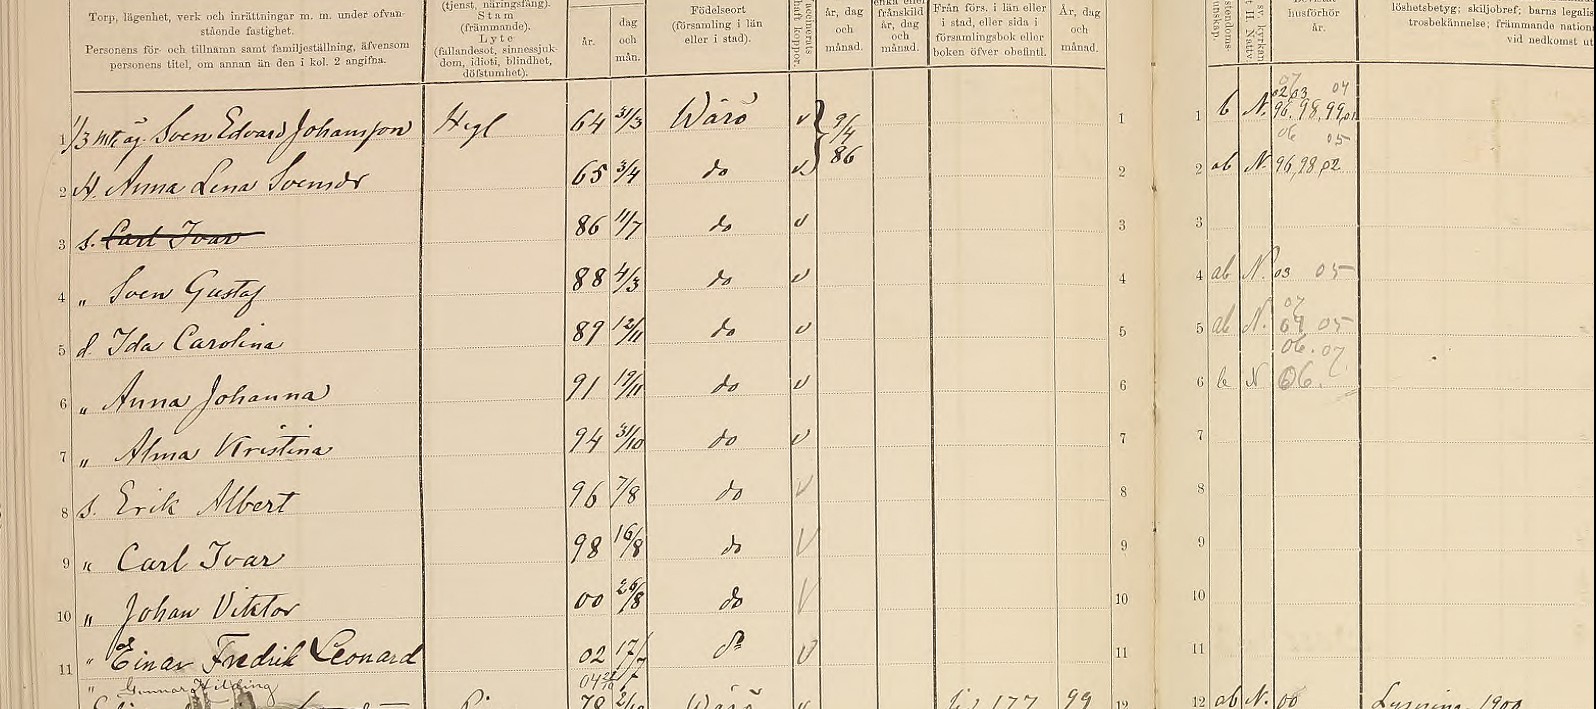 (tjenst, näringsfång).
Stam
(främmande).
Lyte
(fallandesot, sinnessjuk-
dom, idioti, blindhet,
döfstumhet).
Torp, lägenhet, verk och inrättningar m. m. under ofvan-
stående fastighet.
Personens för- och tillnamn samt familjeställning, äfvensom
personens titel, om annan än den i kol. 2 angifna.
år.
dag
och
mån.
Födelseort
(församling i län
eller i stad).
år, dag
och
månad.
frånskild
år, dag
och
månad.
Från förs. i län eller
i stad, eller sida i
församlingsbok eller
boken öfver obefintl.
År, dag
och
månad.
husförhör
år.
löshetsbetyg; skiljobref; barns legalis
trosbekännelse; främmande nation
vid nedkomst ut
1 1/3 mt äg. Sven Edvard Johansson Hegl 64 31/3 Wärö v 9/4 86 1 1 b N. 96, 98, 99, 01
2 H. Anna Lena Svensdr 65 3/4 do v 2 2 ab N. 96, 98 02
3 s. Carl Ivar 86 11/7 do v 3 3
4 " Sven Gustaf 88 4/3 do v 4 4 ab N. 03 05
5 d. Ida Carolina 89 12/11 do v 5 5 ab N. 05
06. 07
6 " Anna Johanna 91 19/11 do v 6 6 b N 06.
7 " Alma Kristina 94 31/10 do v 7 7
8 s. Erik Albert 96 7/8 do v 8 8
9 " Carl Ivar 98 16/8 do v 9 9
10 " Johan Viktor 00 26/8 do v 10 10
11 " Einar Fredrik Leonard 02 17/7 do v 11 11
" Gunnar Hilding 04
78 Wärö 177 99 12 12 ab N. 00 Lysning 1900